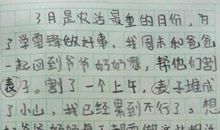 3月是农活最重的日份，为
了学雷锋做好事，我周末和爸爸
一起回到爷爷奶奶家，帮他们割
麦子。割了一个上午，麦子堆成
了小山，我已经累到不行了。想